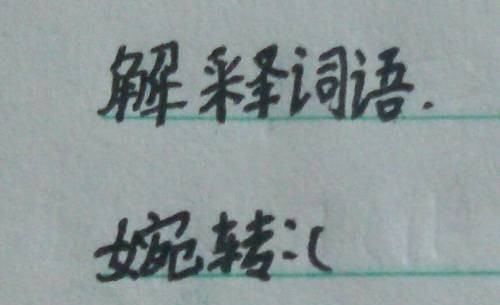 解释词语.
婉转:(